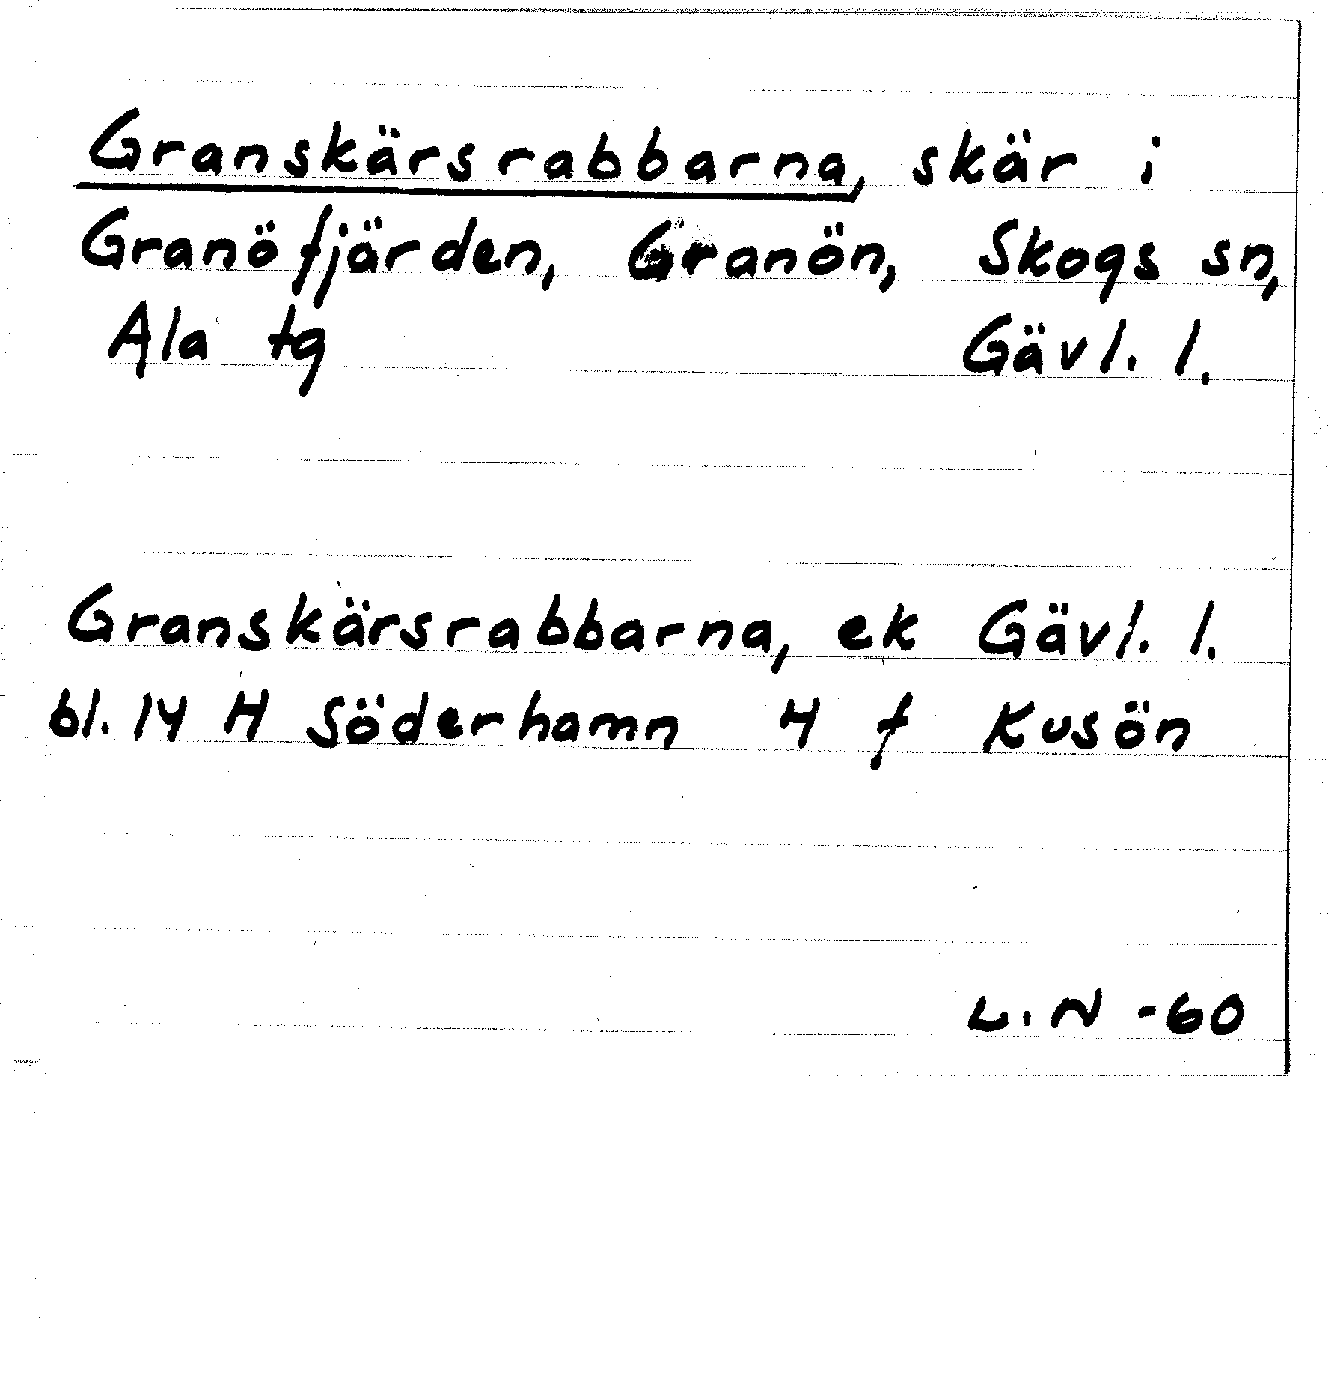 Granskärsrabbarna, skär i
Granöfjärden, Granön, Skogs sn,
Ala tg Gävl. l.
Granskärsrabbarna, ek Gävl. l.
bl. 14 H Söderhamn 4 f Kusön
L.N -60